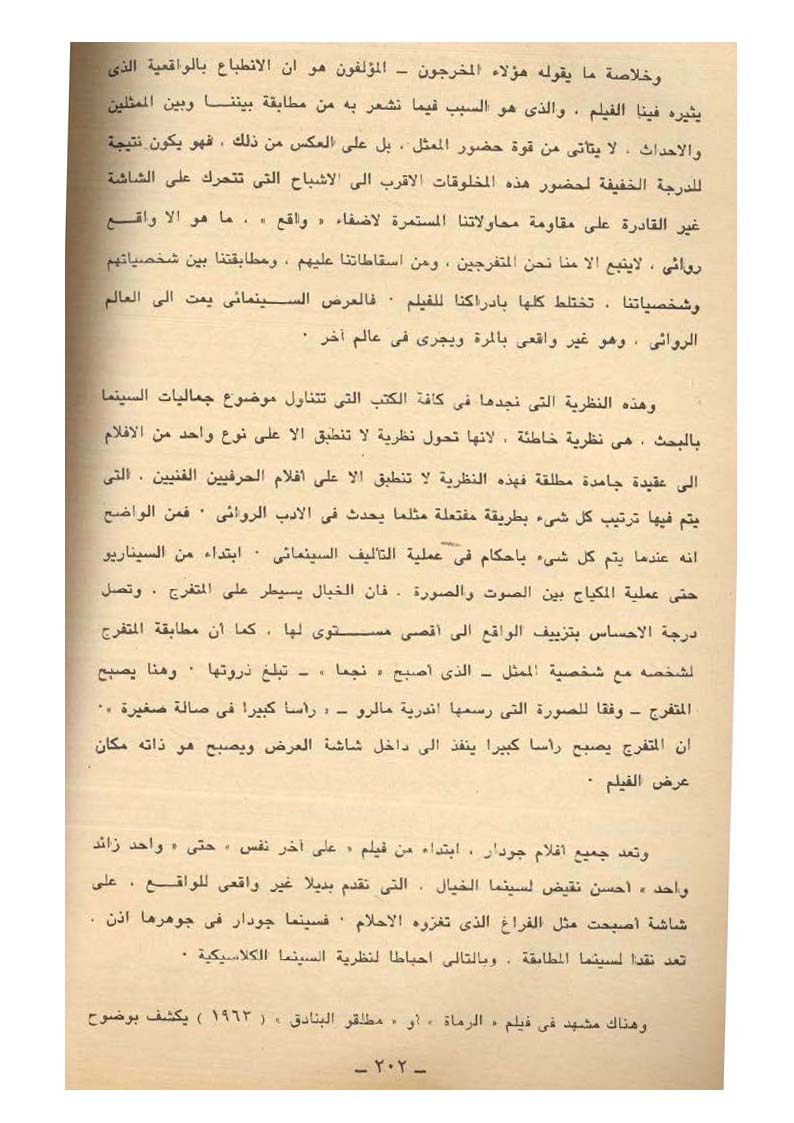 وخلاصة ما يقوله هؤلاء المخرجون ــ المؤلفون هو ان الانطباع بالواقعية الذى
يثيره فينا الفيلم ، والذى هو السبب فيما نشعر به من مطابقة بيننــا وبين الممثلين
والاحداث ، لا يتأتى من قوة حضور الممثل ، بل على العكس من ذلك ، فهو يكون نتيجة
للدرجة الخفيفة لحضور هذه المخلوقات الاقرب الى الاشباح التى تتحرك على الشاشة
غير القادرة على مقاومة محاولاتنا المستمرة لاضفاء « واقع » ، ما هو الا واقــع
روائى ، لاينبع الا منا نحن المتفرجين ، ومن اسقاطاتنا عليهم ، ومطابقتنا بين شخصياتهم
وشخصياتنا ، تختلط كلها بادراكنا للفيلم ٠ فالعرض الســينمائى يمت الى العالم
الروائى ، وهو غير واقعى بالمرة ويجرى فى عالم آخر ٠
وهذه النظرية التى نجدها فى كافة الكتب التى تتناول موضوع جماليات السينما
بالبحث ، هى نظرية خاطئة ، لانها تحول نظرية لا تنطبق الا على نوع واحد من الافلام
الى عقيدة جامدة مطلقة فهذه النظرية لا تنطبق الا على أفلام الحرفيين الفنيين ، التى
يتم فيها ترتيب كل شىء بطريقة مفتعلة مثلما يحدث فى الادب الروائى ٠ فمن الواضح
انه عندما يتم كل شىء باحكام فى عملية التأليف السينمائى ٠ ابتداء من السيناريو
حتى عملية المكياج بين الصوت والصورة ، فان الخيال يسيطر على المتفرج ، وتصل
درجة الاحساس بتزييف الواقع الى أقصى مســتوى لها ، كما أن مطابقة المتفرج
لشخصه مع شخصية الممثل ــ الذى أصبح « نجما » ــ تبلغ ذروتها ٠ وهنا يصبح
المتفرج ــ وفقا للصورة التى رسمها اندرية مالرو ــ « رأسا كبيرا فى صالة صغيرة »٠
ان المتفرج يصبح رأسا كبيرا ينفذ الى داخل شاشة العرض ويصبح هو ذاته مكان
عرض الفيلم ٠
وتعد جميع أفلام جودار ، ابتداء من فيلم « على آخر نفس » حتى « واحد زائد
واحد » أحسن نقيض لسينما الخيال ، التى تقدم بديلا غير واقعى للواقــع ، على
شاشة أصبحت مثل الفراغ الذى تغزوه الاحلام ٠ فسينما جودار فى جوهرها اذن ،
تعد نقدا لسينما المطابقة ، وبالتالى احباطا لنظرية السينما الكلاسيكية ٠
وهناك مشهد فى فيلم « الرماة » أو « مطلقو البنادق » ( ١٩٦٣ ) يكشف بوضوح
ــ ٢٠٢ ــ